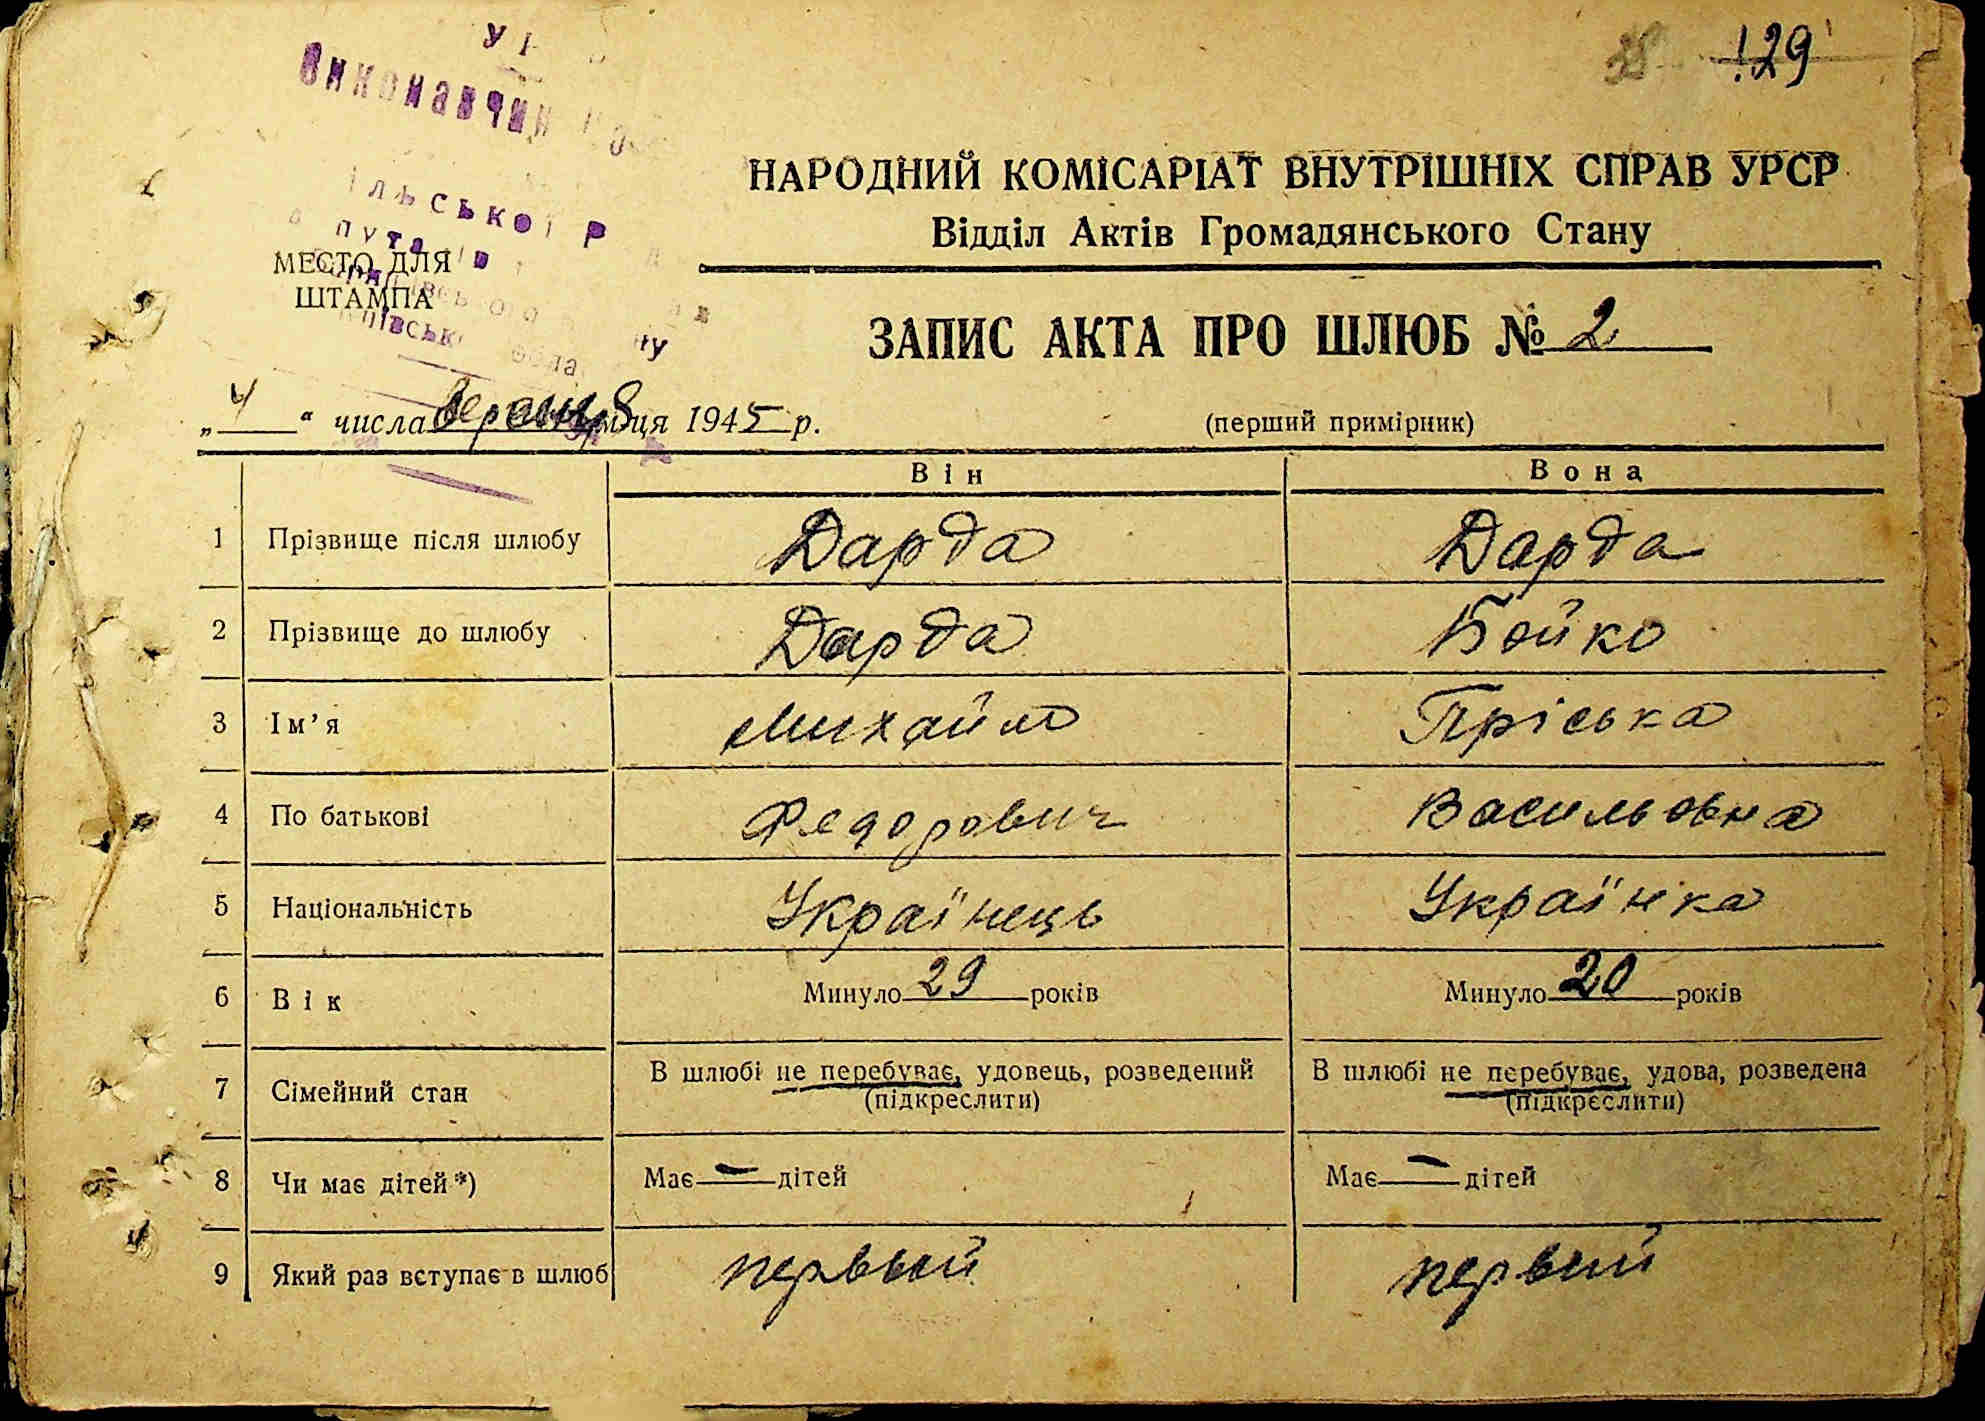 129
Виконавчий
МЕСТО ДЛЯ
ШТАМПА
НАРОДНИЙ КОМІСАРІАТ ВНУТРІШНІХ СПРАВ УРСР
Відділ Актів Громадянського Стану
ЗАПИС АКТА ПРО ШЛЮБ № 2
„4“ числа вересня м-ця 1945 р.
(перший примірник)
Він Вона
1 Прізвище після шлюбу Дарда Дарда
2 Прізвище до шлюбу Дарда Бойко
3 Ім’я Михайло Пріська
4 По батькові Федорович Васильовна
5 Національність Українець Українка
6 Вік Минуло 29 років Минуло 20 років
7 Сімейний стан В шлюбі не перебуває, удовець, розведений В шлюбі не перебуває, удова, розведена
(підкреслити) (підкреслити)
8 Чи має дітей*) Має — дітей Має — дітей
9 Який раз вступає в шлюб первый первый